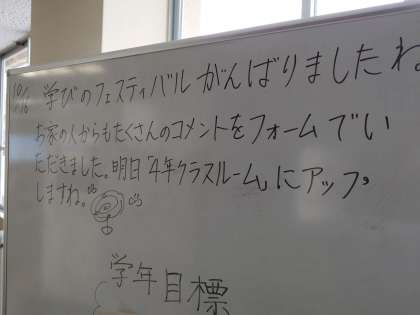 10/16 学びのフェスティバルがんばりましたね
お家の人からもたくさんのコメントをフォームでい
ただきました。明日「4年クラスルーム」にアップ
しますね。
学年目標